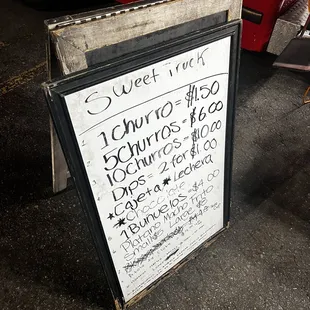 Sweet Truck
1 Churro = $1.50
5 Churros = $6.00
10 Churros = $10.00
Dips = 2 for $1.00
*Cajeta *Lechera
*Chocolate
1 Buñuelos = $4.00
Platano Macho Frito
Small $6 Large $8